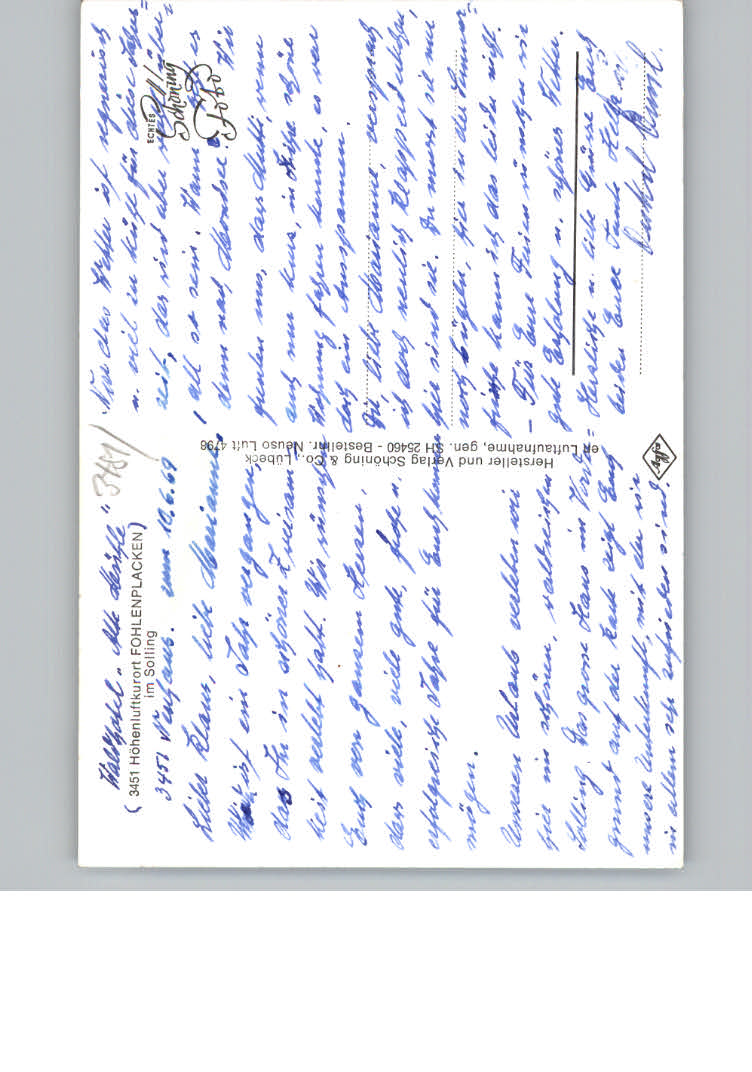 Waldhotel "Alte Linde"
( 3451 Höhenluftkurort FOHLENPLACKEN )
im Solling
3451 Neuhaus. zum 10.6.69
Lieber Klaus, liebe Marianne,
ist ein Jahr vergangen,
dass Ihr in schöner Zweisam-
keit verlebt habt. Wir wünschen
Euch von ganzem Herzen,
dass viele, viele gute, frohe u.
erfolgreiche Jahre für Euch kommen
mögen.
Unseren Urlaub verleben wir
hier im schönen, waldreichen
Solling. Das grosse Haus im Vorder-
grund auf der Karte zeigt Euch
unsere Unterkunft, mit der wir
in allem sehr zufrieden sind.
Nur das Wetter ist regnerisch
u. viel zu kühl für diese Jahres-
zeit, das wird aber
all so sein. Wann es
denn nach
freuen uns, dass Mutti, wenn
auch nur kurz, in schöne
fahren konnte, es war
doch ein Ausspannen.
Du, liebe Marianne, versprachst
ich doch neulich Klappstühlchen,
hier sind sie. Du musst sie nur
noch bügeln, hier in der Sommer-
frische kann ich das leider nicht.
- Für Eure Ferien wünschen wir
gute Erholung u. schönes Wetter.
Herzliche u. liebe Grüsse Euch
beiden Eure Tante Käthe u.
Onkel
ECHTES
Schöning
Foto
Hersteller und Verlag Schöning & Co., Lübeck
en Luftaufnahme, gen. SH 25460 - Bestellnr. Neuso Luft 4798
Agfa